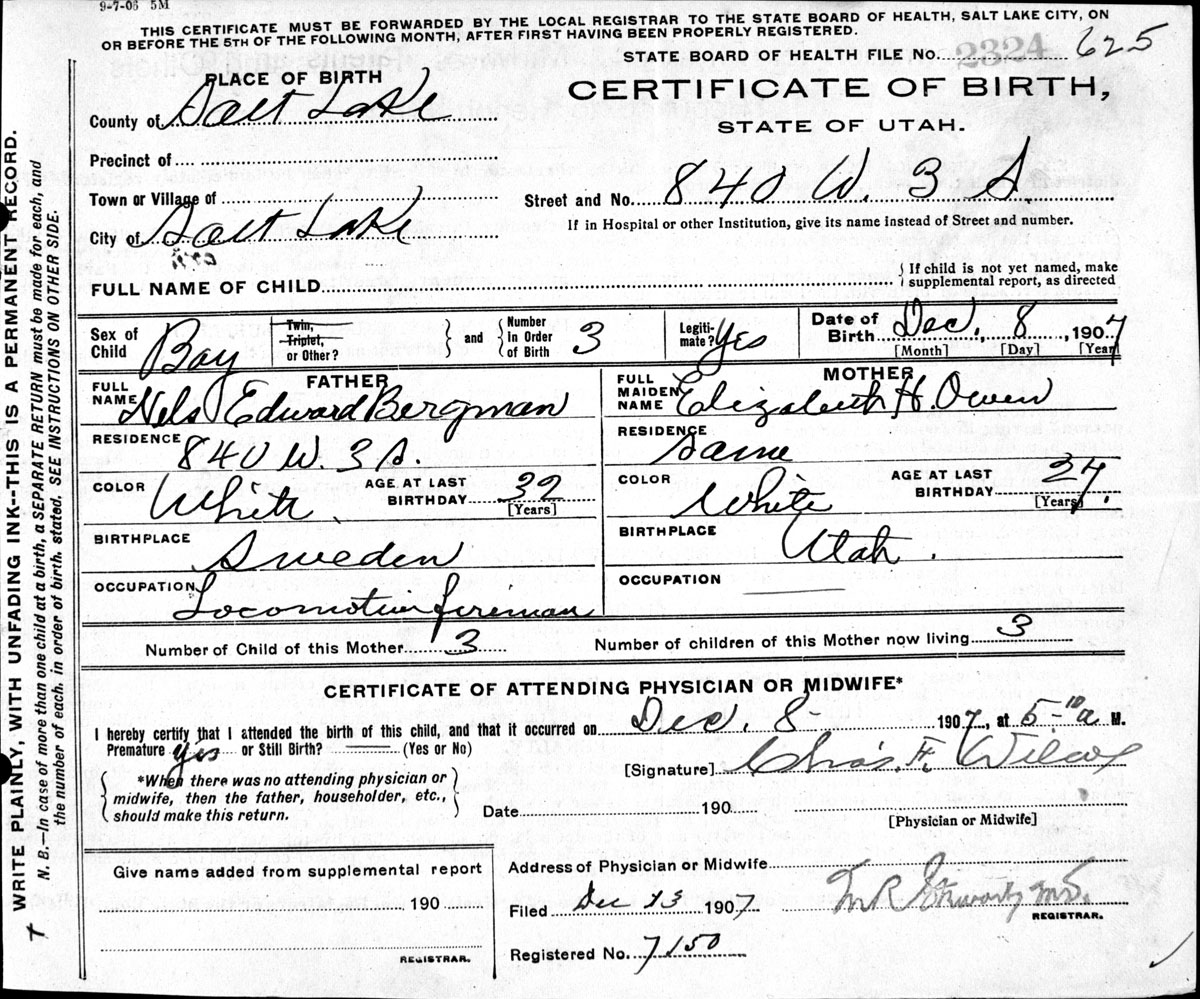 9-7-06 5M
THIS CERTIFICATE MUST BE FORWARDED BY THE LOCAL REGISTRAR TO THE STATE BOARD OF HEALTH, SALT LAKE CITY, ON
OR BEFORE THE 5TH OF THE FOLLOWING MONTH, AFTER FIRST HAVING BEEN PROPERLY REGISTERED.
STATE BOARD OF HEALTH FILE No. 2324 625
PLACE OF BIRTH
CERTIFICATE OF BIRTH,
STATE OF UTAH.
County of Salt Lake
Precinct of
Town or Village of
Street and No. 840 W. 3 S.
City of Salt Lake
If in Hospital or other Institution, give its name instead of Street and number.
FULL NAME OF CHILD
If child is not yet named, make
supplemental report, as directed
Sex of Child Boy
Twin, Triplet, or Other?
and Number In Order of Birth 3
Legitimate? Yes
Date of Birth Dec. 8 1907
[Month] [Day] [Year]
FATHER
FULL NAME Nels Edward Bergman
RESIDENCE 840 W. 3 S.
COLOR White AGE AT LAST BIRTHDAY 32 [Years]
BIRTHPLACE Sweden
OCCUPATION Locomotive fireman
MOTHER
FULL MAIDEN NAME Elizabeth H. Owen
RESIDENCE Same
COLOR White AGE AT LAST BIRTHDAY 27. [Years]
BIRTHPLACE Utah.
OCCUPATION
Number of Child of this Mother 3
Number of children of this Mother now living 3
CERTIFICATE OF ATTENDING PHYSICIAN OR MIDWIFE*
I hereby certify that I attended the birth of this child, and that it occurred on Dec. 8 1907, at 5-10 a M.
Premature yes or Still Birth? (Yes or No)
*When there was no attending physician or
midwife, then the father, householder, etc.,
should make this return.
[Signature] Chas. F. Wilcox
Date 190
[Physician or Midwife]
Give name added from supplemental report
190
REGISTRAR.
Address of Physician or Midwife
Filed Dec 13 1907 M R Stewart MD.
REGISTRAR.
Registered No. 7150
WRITE PLAINLY, WITH UNFADING INK--THIS IS A PERMANENT RECORD.
N. B.—In case of more than one child at a birth, a SEPARATE RETURN must be made for each, and
the number of each, in order of birth, stated. SEE INSTRUCTIONS ON OTHER SIDE.